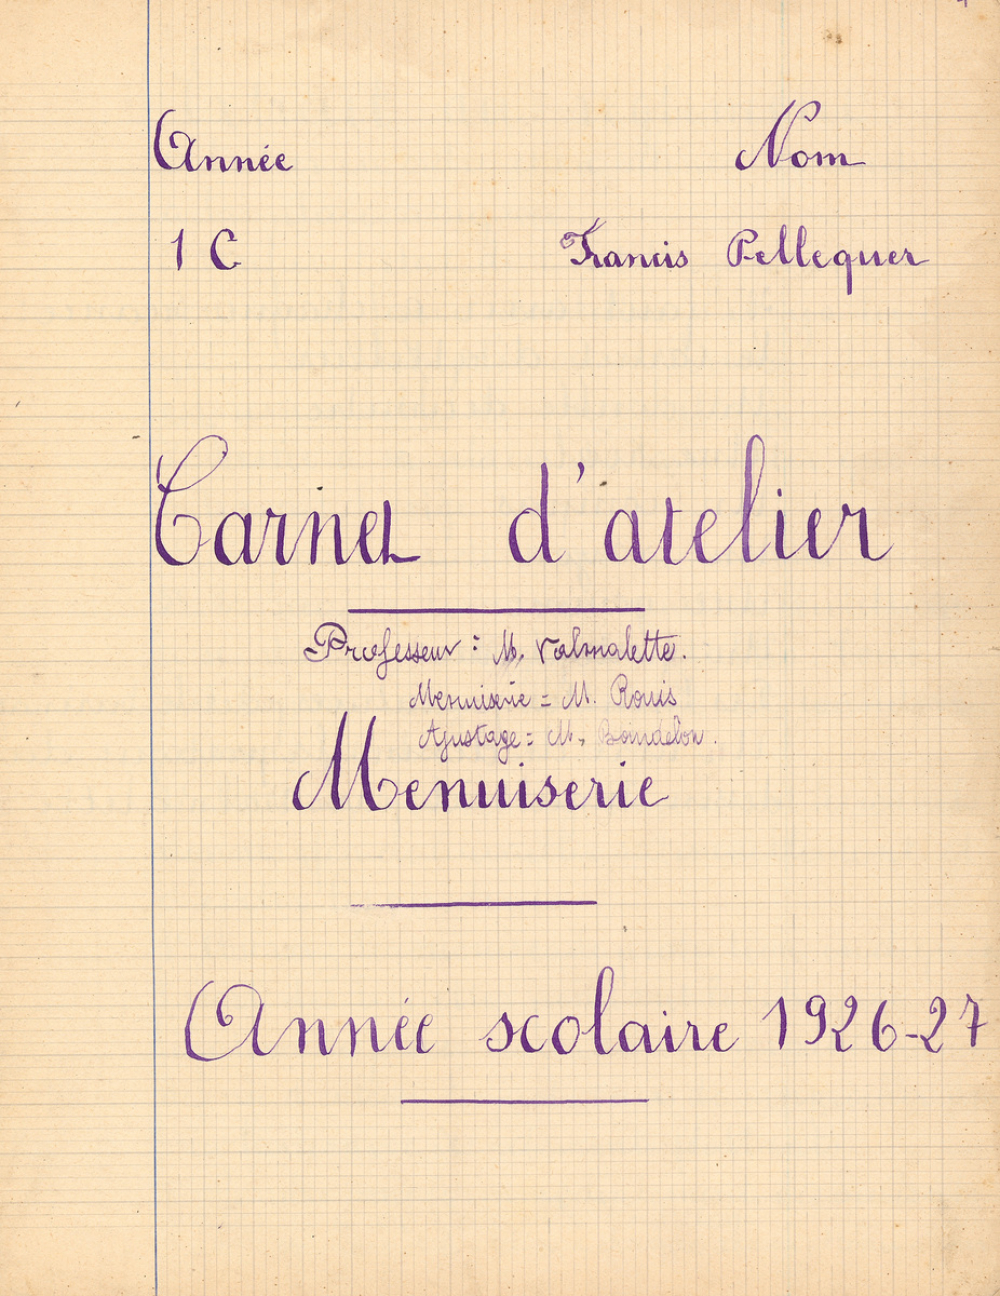 Année Nom
1 C Francis Pellequer
Carnet d'atelier
Professeur : M. Valmalette.
Menuiserie = M. Rouis
Ajustage = M. Bourdelon.
Menuiserie
Année scolaire 1926-27